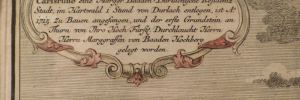 Carlsruhe eine Fürstl. Baaden Durlachische Residenz
Stadt, im Hartwald 1 Stund von Durlach entlegen, ist Aº
1715 Zu Bauen angefangen, und der erste Grundstein am
Thurn von Ihro Hoch Fürstl. Durchlaucht Herrn
Herrn Marggraffen von Baaden Hochberg
gelegt worden.